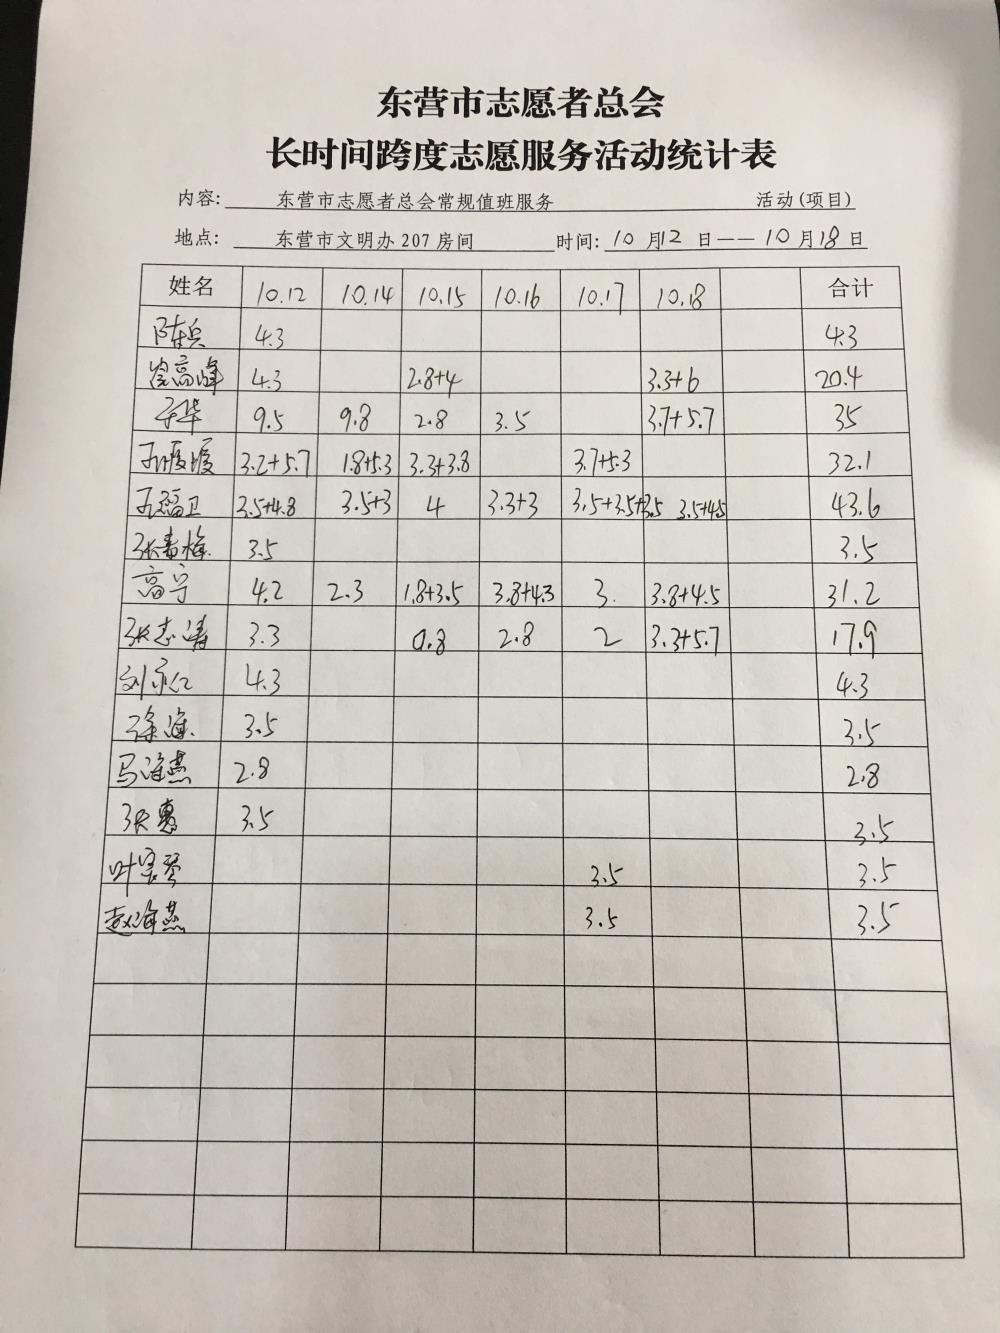 东营市志愿者总会
长时间跨度志愿服务活动统计表
内容: 东营市志愿者总会常规值班服务 活动(项目)
地点: 东营市文明办 207 房间 时间: 10 月 12 日——10 月 18 日
姓名 10.12 10.14 10.15 10.16 10.17 10.18 合计
陈兵 4.3 4.3
高峰 4.3 2.8+4 3.3+6 20.4
华 9.5 9.8 2.8 3.5 3.7+5.7 35
媛媛 3.2+5.7 1.8+5.3 3.3+3.8 3.7+5.3 32.1
卫 3.5+4.8 3.5+3 4 3.3+3 3.5+3.5+3.5 3.5+4.5 43.6
张春梅 3.5 3.5
高宁 4.2 2.3 1.8+3.5 3.8+4.3 3 3.8+4.5 31.2
张志涛 3.3 0.8 2.8 2 3.3+5.7 17.9
刘永仁 4.3 4.3
徐海 3.5 3.5
马海燕 2.8 2.8
张惠 3.5 3.5
叶宝琴 3.5 3.5
赵海燕 3.5 3.5